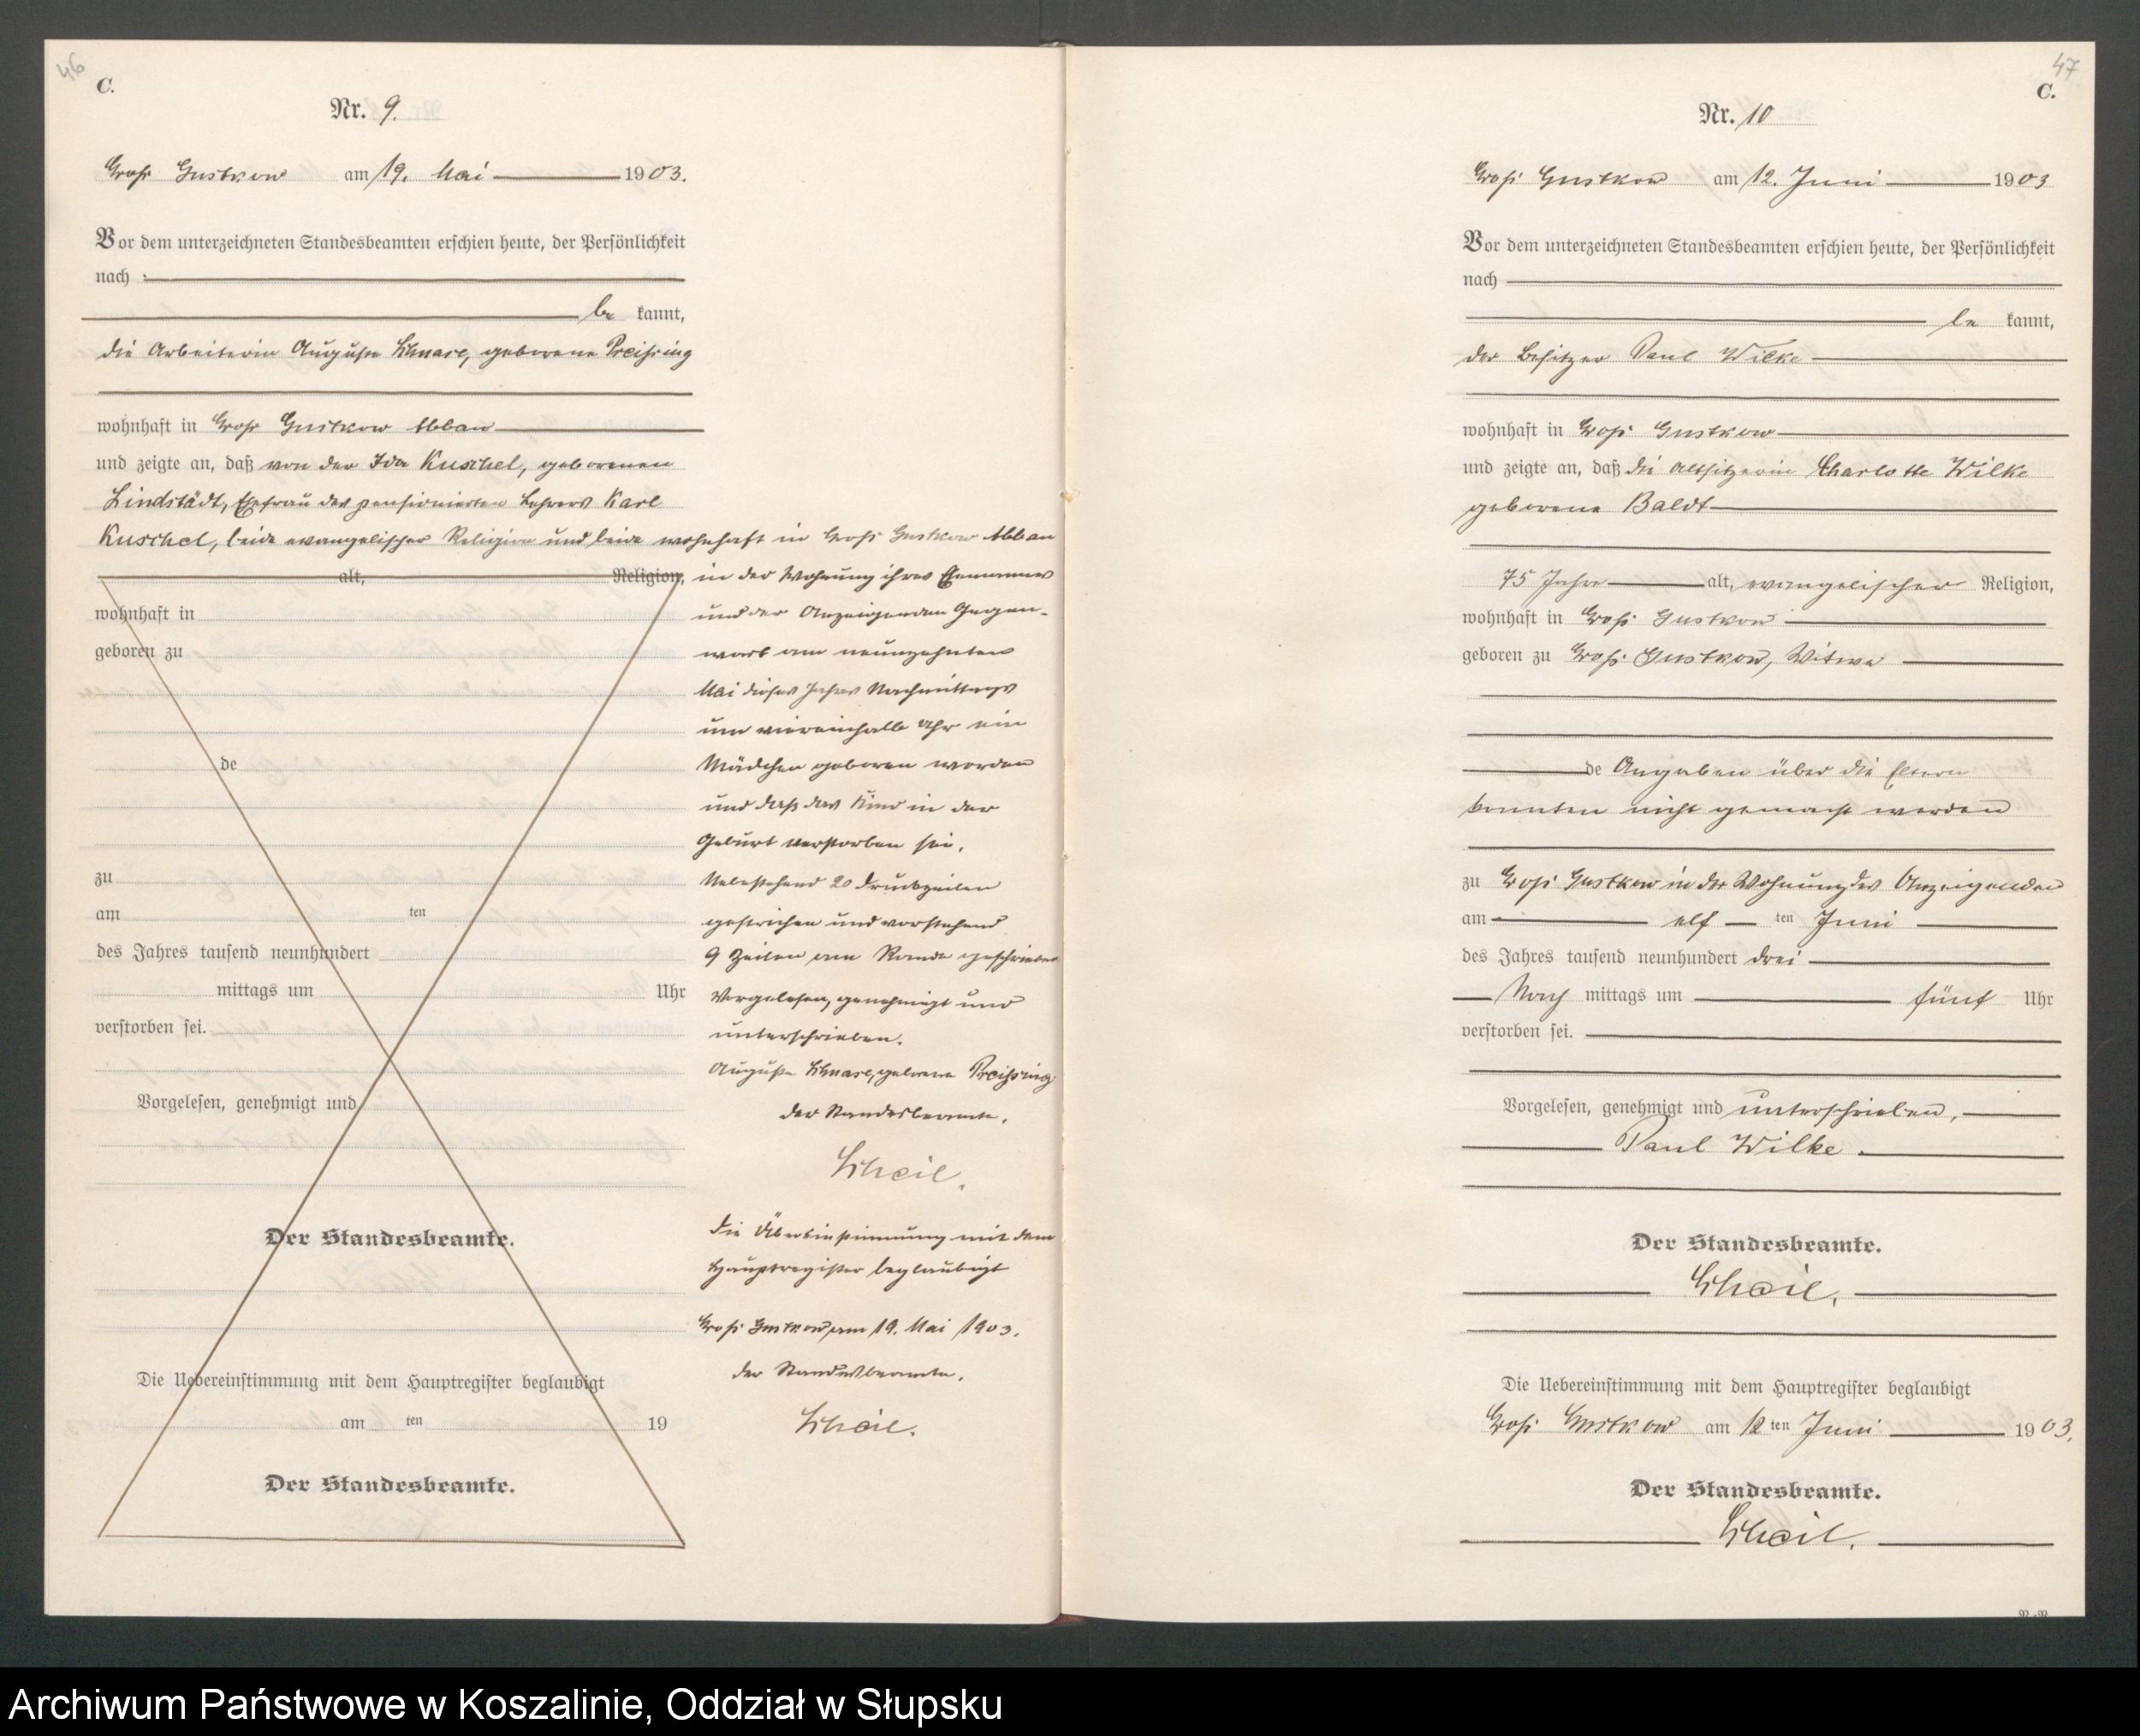 46
C.
Nr. 9.
Groß Gustkow am 19. Mai 1903.
Vor dem unterzeichneten Standesbeamten erschien heute, der Persönlichkeit
nach
be kannt,
die Arbeiterin Auguste Schnase, geborene Preißing
wohnhaft in Groß Gustkow Abbau
und zeigte an, daß von der Ida Kuschel, geborenen
Lindstädt, Ehefrau des pensionierten Lehrers Karl
Kuschel, beide evangelischer Religion und beide wohnhaft in Groß Gustkow Abbau
alt, Religion,
wohnhaft in
geboren zu
de
zu
am ten
des Jahres tausend neunhundert
mittags um Uhr
verstorben sei.
Vorgelesen, genehmigt und
Der Standesbeamte.
Die Uebereinstimmung mit dem Hauptregister beglaubigt
am ten 19
Der Standesbeamte.
in der Wohnung ihres Ehemannes
und der Anzeigenden Gegen-
wart am neunzehnten
Mai dieses Jahres Nachmittags
um viereinhalb Uhr ein
Mädchen geboren worden
und daß das Kind in der
Geburt verstorben sei.
Nebenstehend 20 Druckzeilen
gestrichen und vorstehend
9 Zeilen am Rande geschrieben
Vorgelesen, genehmigt und
unterschrieben.
Auguste Schnase, geborene Preißing
Der Standesbeamte.
Scheil.
Die Übereinstimmung mit dem
Hauptregister beglaubigt
Groß Gustkow, am 19. Mai 1903.
Der Standesbeamte.
Scheil.
47
C.
Nr. 10
Groß Gustkow am 12. Juni 1903
Vor dem unterzeichneten Standesbeamten erschien heute, der Persönlichkeit
nach
be kannt,
der Besitzer Paul Wilke
wohnhaft in Groß Gustkow
und zeigte an, daß die Altsitzerin Charlotte Wilke
geborene Baldt
75 Jahre alt, evangelischer Religion,
wohnhaft in Groß Gustkow
geboren zu Groß Gustkow, Witwe
de Angaben über die Eltern
konnten nicht gemacht werden
zu Groß Gustkow in der Wohnung des Anzeigenden
am elf ten Juni
des Jahres tausend neunhundert drei
Nach mittags um fünf Uhr
verstorben sei.
Vorgelesen, genehmigt und unterschrieben,
Paul Wilke.
Der Standesbeamte.
Scheil.
Die Uebereinstimmung mit dem Hauptregister beglaubigt
Groß Gustkow am 12 ten Juni 1903.
Der Standesbeamte.
Scheil.
Archiwum Państwowe w Koszalinie, Oddział w Słupsku